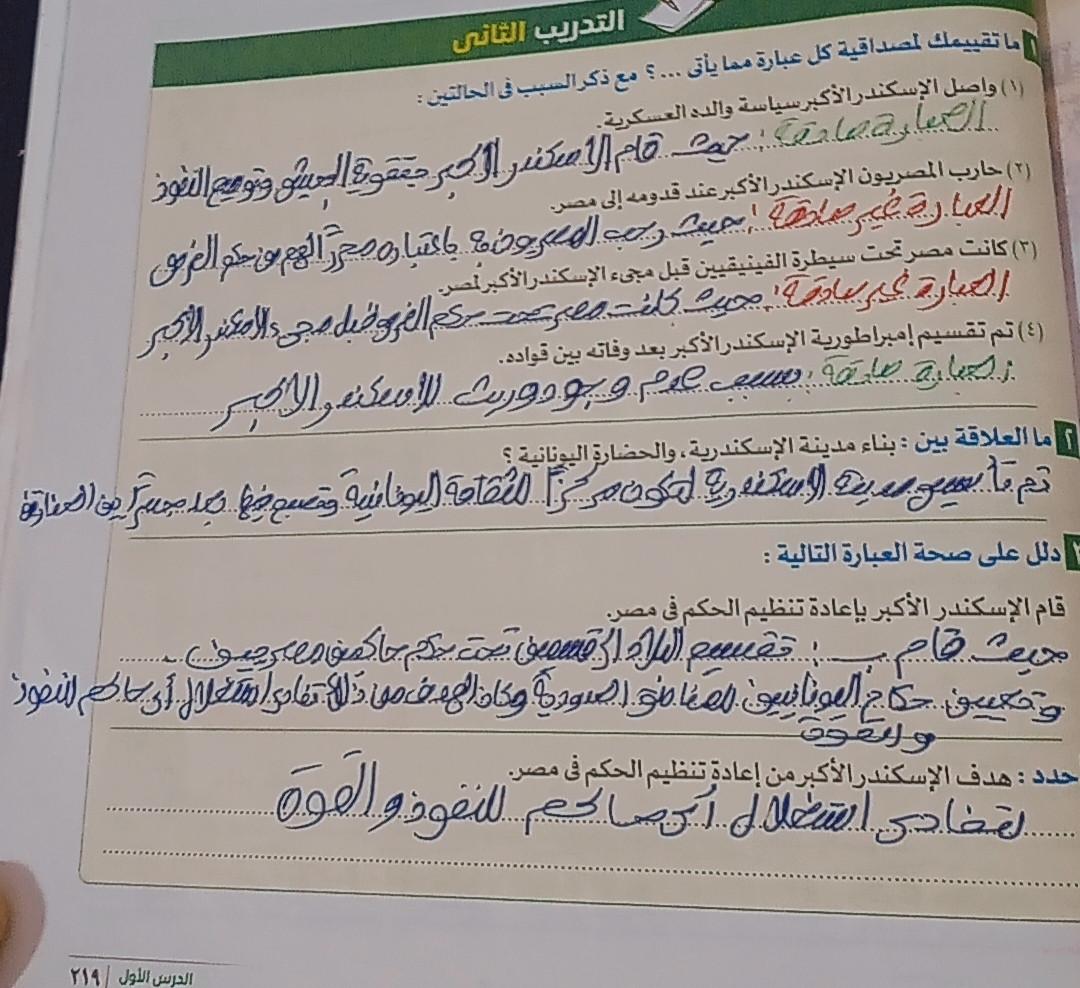 التدريب الثانى
١ ما تقييمك لمصداقية كل عبارة مما يأتى ...؟ مع ذكر السبب فى الحالتين :
(١) واصل الإسكندر الأكبر سياسة والده العسكرية.
العبارة صادقة : حيث قام الاسكندر الاكبر بتقوية الجيش وتوسيع النفوذ
(٢) حارب المصريون الإسكندر الأكبر عند قدومه إلى مصر.
العبارة غير صادقة : حيث رحب المصريون به باعتباره محررًا لهم من حكم الفرس
(٣) كانت مصر تحت سيطرة الفينيقيين قبل مجىء الإسكندر الأكبر لمصر.
العبارة غير صادقة : حيث كانت مصر تحت حكم الفرس قبل مجىء الاسكندر الأكبر
(٤) تم تقسيم إمبراطورية الإسكندر الأكبر بعد وفاته بين قواده.
العبارة صادقة : بسبب عدم وجود وريث للأسكندر الاكبر
٢ ما العلاقة بين : بناء مدينة الإسكندرية، والحضارة اليونانية ؟
تم تأسيس مدينة الاسكندرية لتكون مركزًا للثقافة اليونانية وتصبح فيما بعد جسرًا بين الحضارة
دلل على صحة العبارة التالية :
قام الإسكندر الأكبر بإعادة تنظيم الحكم فى مصر.
حيث قام بـ : تقسيم البلاد إلى قسمين تحت حكم حاكمين مصريين
وتعيين حكام اليونانيين للمناطق الحدودية وكان الهدف من ذلك تفادى استغلال أى حاكم للنفوذ
والقوة
حدد : هدف الإسكندر الأكبر من إعادة تنظيم الحكم فى مصر.
لتفادى استغلال أى حاكم للنفوذ والقوة
الدرس الأول | ٢١٩